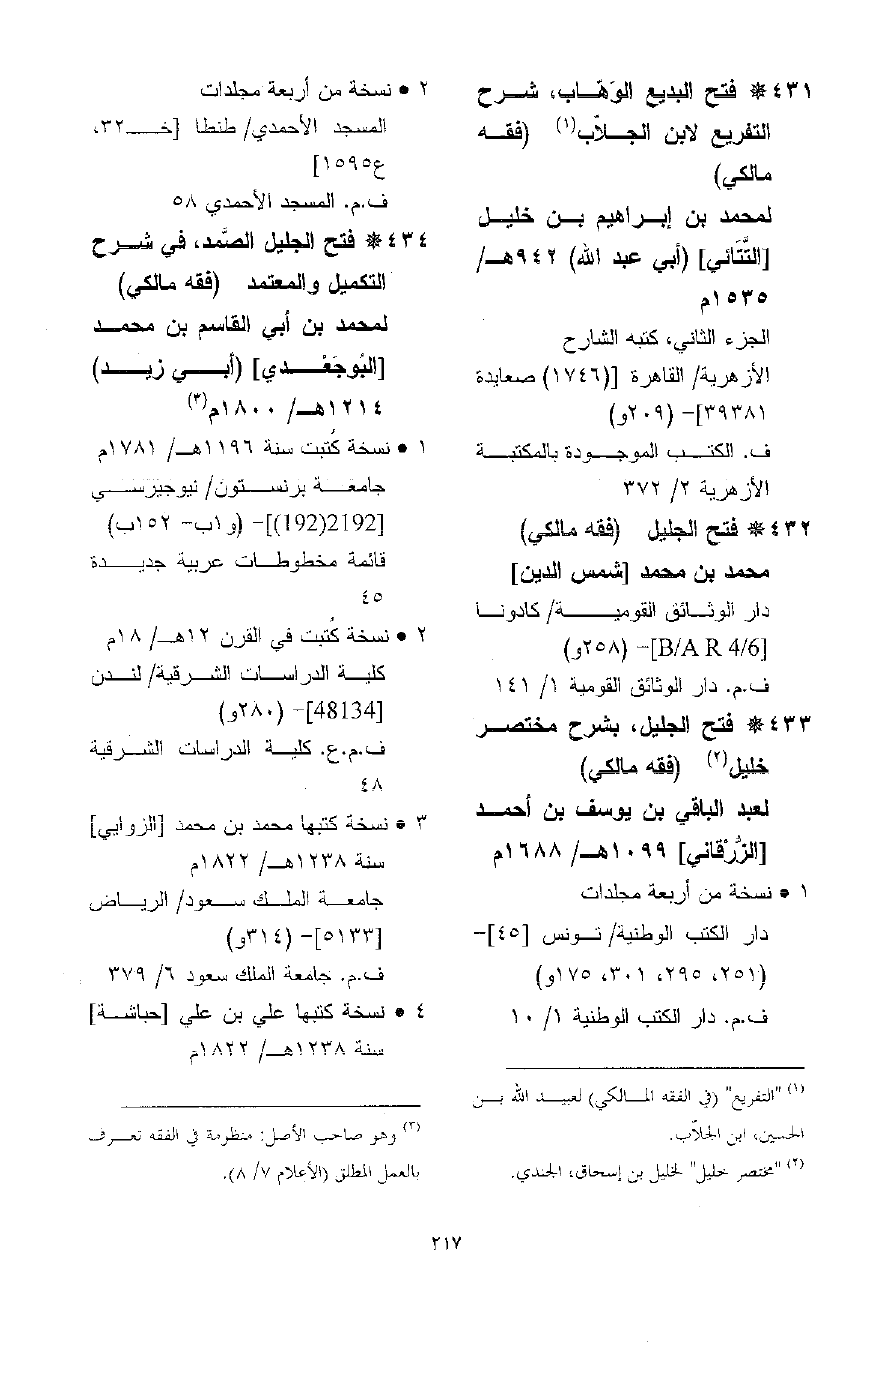 ٤٣١ * فتح البديع الوَهّاب، شرح
التفريع لابن الجلاّب(١) (فقه
مالكي)
لمحمد بن إبراهيم بن خليل
[التَّتَائي] (أبي عبد الله) ٩٤٢هـ/
١٥٣٥م
الجزء الثاني، كتبه الشارح
الأزهرية/ القاهرة [(١٧٤٦) صعايدة
٣٩٣٨١]- (٢٠٩و)
ف. الكتب الموجودة بالمكتبة
الأزهرية ٢/ ٣٧٢
٤٣٢ * فتح الجليل (فقه مالكي)
محمد بن محمد [شمس الدين]
دار الوثائق القومية/ كادونا
[B/A R 4/6]- (٢٥٨و)
ف.م. دار الوثائق القومية ١/ ١٤١
٤٣٣ * فتح الجليل، بشرح مختصر
خليل(٢) (فقه مالكي)
لعبد الباقي بن يوسف بن أحمد
[الزُّرْقاني] ١٠٩٩هـ/ ١٦٨٨م
١ • نسخة من أربعة مجلدات
دار الكتب الوطنية/ تونس [٤٥]-
(٢٥١، ٢٩٥، ٣٠١، ١٧٥و)
ف.م. دار الكتب الوطنية ١/ ١٠
(١) "التفريع" (في الفقه المالكي) لعبيد الله بن
الحسين، ابن الجلاّب.
(٢) "مختصر خليل" لخليل بن إسحاق، الجندي.
٢ • نسخة من أربعة مجلدات
المسجد الأحمدي/ طنطا [خـ٣٢،
ع١٥٩٥]
ف.م. المسجد الأحمدي ٥٨
٤٣٤ * فتح الجليل الصَّمد، في شرح
التكميل والمعتمد (فقه مالكي)
لمحمد بن أبي القاسم بن محمد
[البُوجَعْدي] (أبي زيد)
١٢١٤هـ/ ١٨٠٠م(٣)
١ • نسخة كُتبت سنة ١١٩٦هـ/ ١٧٨١م
جامعة برنستون/ نيوجيرسي
[2192(192)]- (و١ب- ١٥٢ب)
قائمة مخطوطات عربية جديدة
٤٥
٢ • نسخة كُتبت في القرن ١٢هـ/ ١٨م
كلية الدراسات الشرقية/ لندن
[48134]- (٢٨٠و)
ف.م.ع. كلية الدراسات الشرقية
٤٨
٣ • نسخة كتبها محمد بن محمد [الزوايي]
سنة ١٢٣٨هـ/ ١٨٢٢م
جامعة الملك سعود/ الرياض
[٥١٣٣]- (٣١٤و)
ف.م. جامعة الملك سعود ٦/ ٣٧٩
٤ • نسخة كتبها علي بن علي [حباشة]
سنة ١٢٣٨هـ/ ١٨٢٢م
(٣) وهو صاحب الأصل: منظومة في الفقه تعرف
بالعمل المطلق (الأعلام ٧/ ٨).
٢١٧